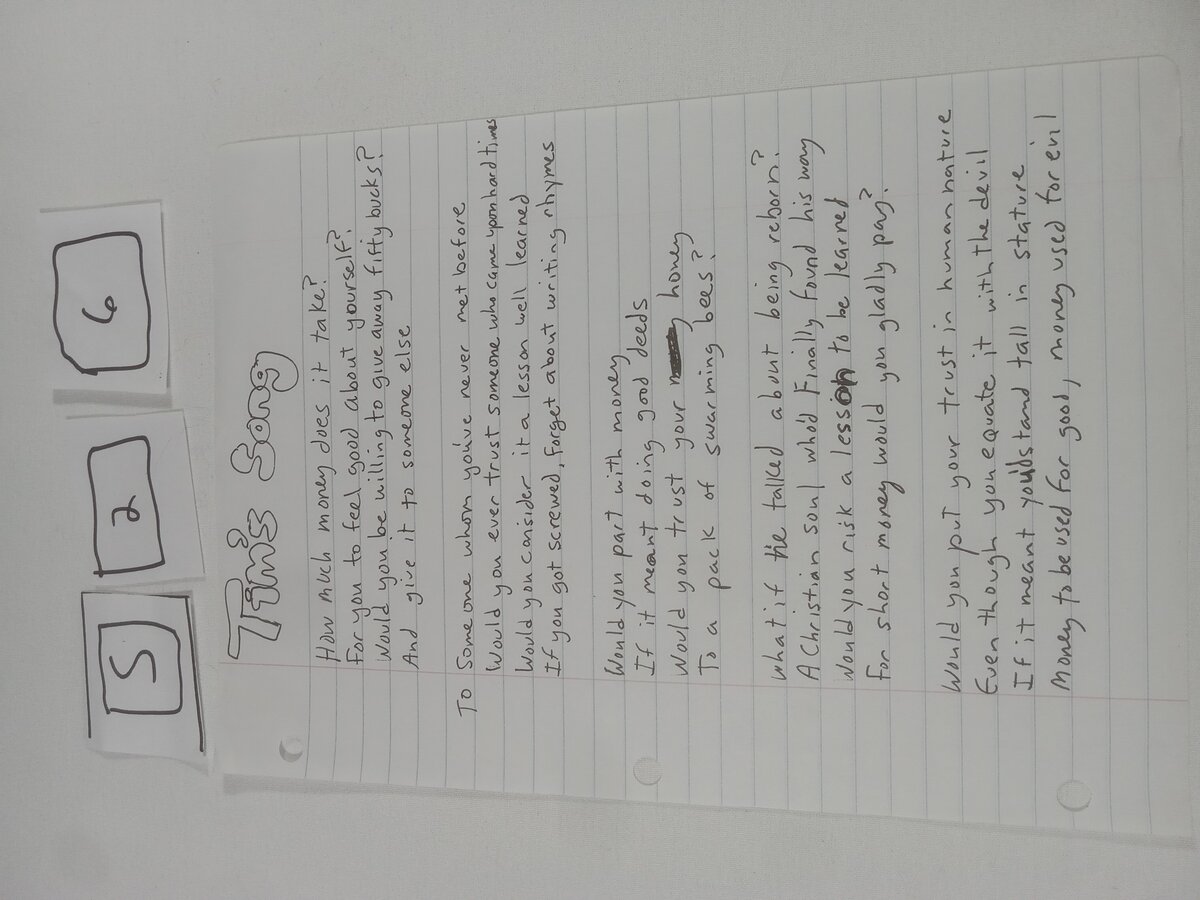 5 2 6
Tim's Song
How much money does it take?
For you to feel good about yourself?
Would you be willing to give away fifty bucks?
And give it to someone else
To Someone whom you've never met before
Would you ever trust someone who came upon hard times
Would you consider it a lesson well learned
If you got screwed, Forget about writing rhymes
Would you part with money
If it meant doing good deeds
Would you trust your honey
To a pack of swarming bees?
What if he talked about being reborn?
A Christian soul who'd Finally found his way
Would you risk a lesson to be learned
For short money would you gladly pay?
Would you put your trust in human nature
Even though you equate it with the devil
If it meant you'd stand tall in stature
Money to be used for good, money used for evil